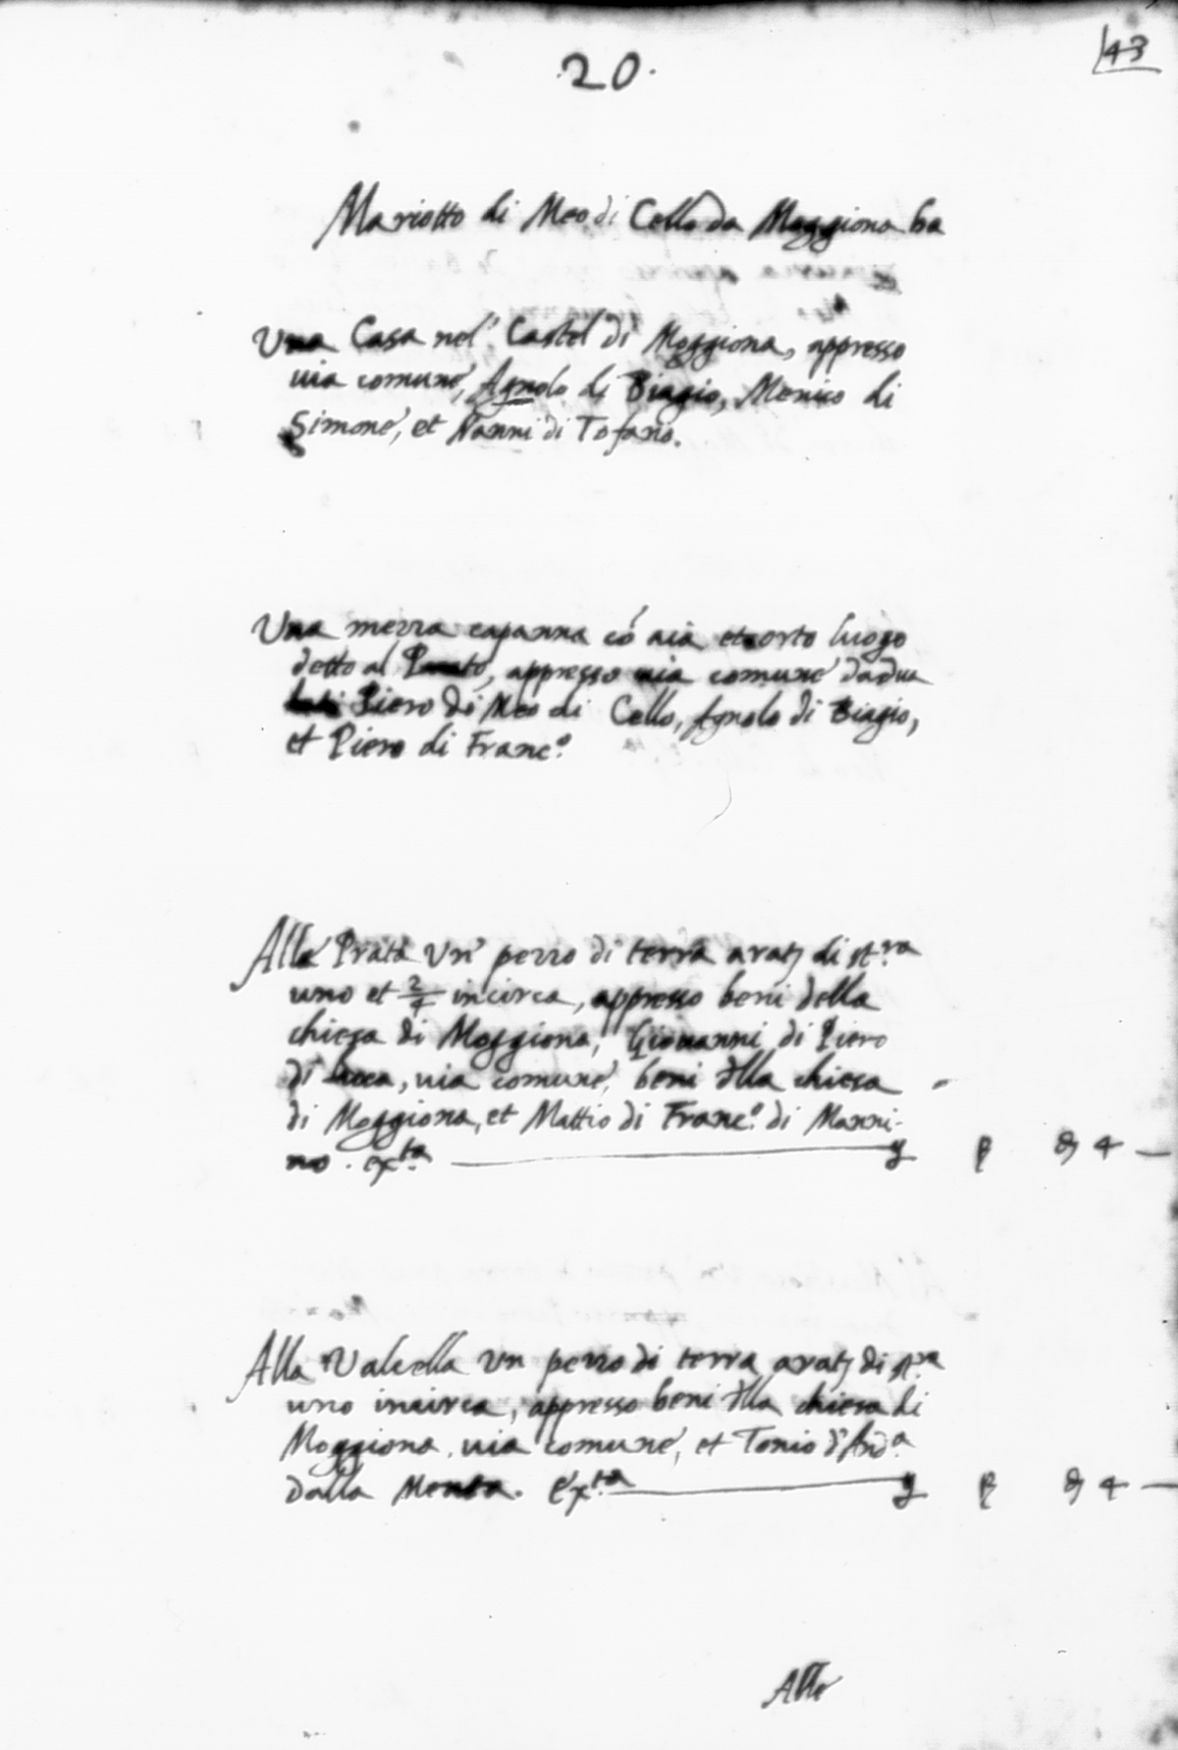 20.
43
Mariotto di Meo di Cello da Moggiona ha
Una Casa nel' Castel di Moggiona, appresso
uia comune, Agnolo di Biagio, Menico di
Simone, et Nanni di Tofano.
Una mezza capanna co' aia et orto luogo
detto al, appresso uia comune da dua
lati Piero di Meo di Cello, Agnolo di Biagio,
et Piero di Franc.º
Alle Prata un' pezzo di terra arat. di st.ra
uno et 2/4 incirca, appresso beni della
chiesa di Moggiona, Giovanni di Piero
di Lucca, uia comune, beni dlla chiesa
di Moggiona, et Mattio di Franc.º di Manni-
no. ex.ta
4 —
Alla Valcella un pezzo di terra arat. di st.ra
uno incirca, appresso beni dlla chiesa di
Moggiona, uia comune, et Tonio d'And.a
dalla Menta. Ex.ta
4 —
Alle